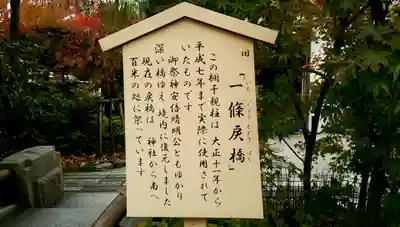 旧
「一條戻橋」
いちじょうもどりばし
この欄干親柱は 大正十一年から
平成七年まで実際に使用されて
いたものです
御祭神安倍晴明公ともゆかり
深い橋ゆえ 境内に復元しました
現在の戻橋は 神社から南へ
百米の処に架っています